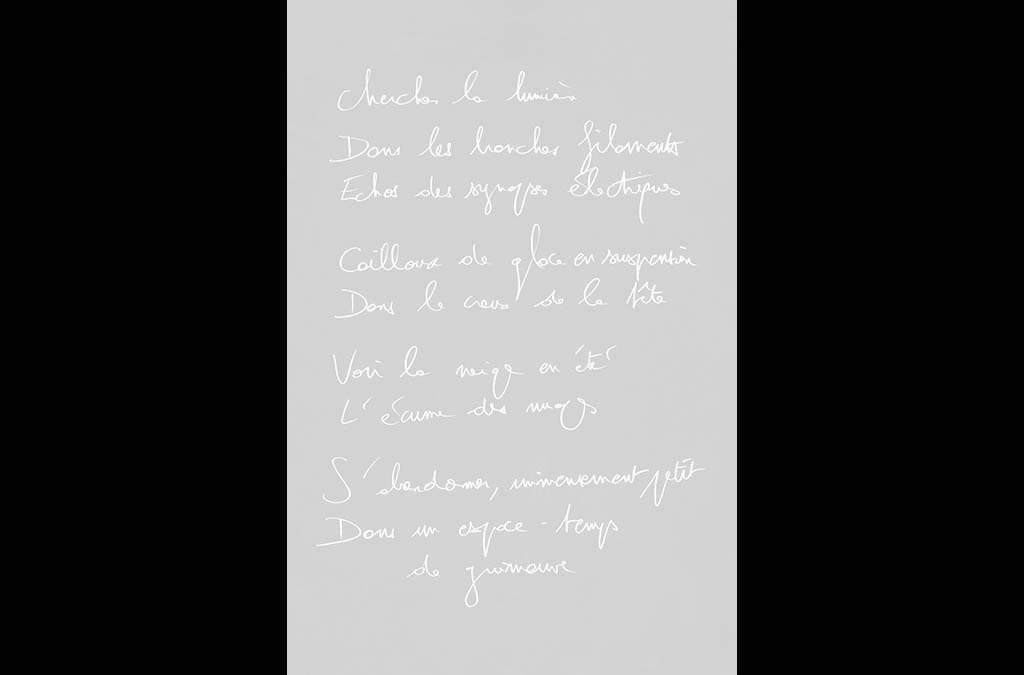 Chercher la lumière
Dans les branches filaments
Echos des synapses électriques
Cailloux de glace en suspension
Dans le creux de la tête
Voir la neige en été
L'écume des nuages
S'abandonner, immensement petit
Dans un espace-temps
de guimauve